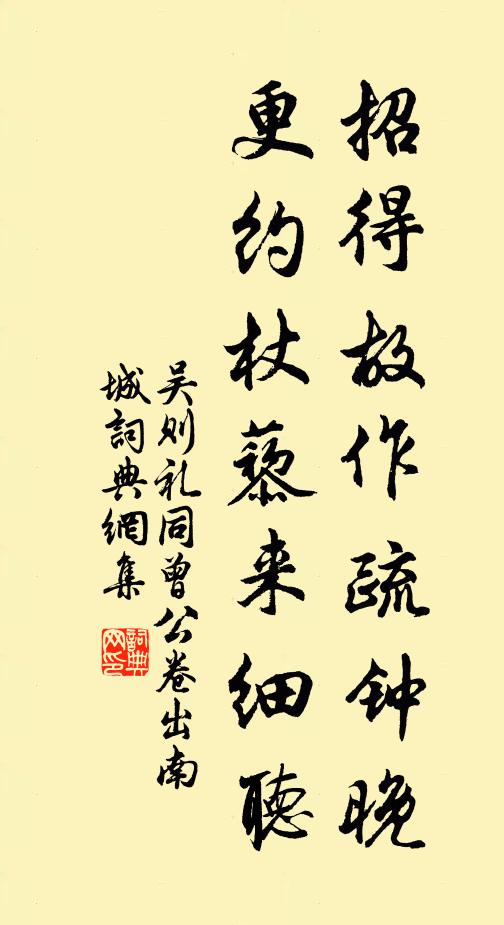 招得故作疏钟晚
更约杖藜来细聽
吴则礼同曾公卷出南
城詞典網集
詞典网印